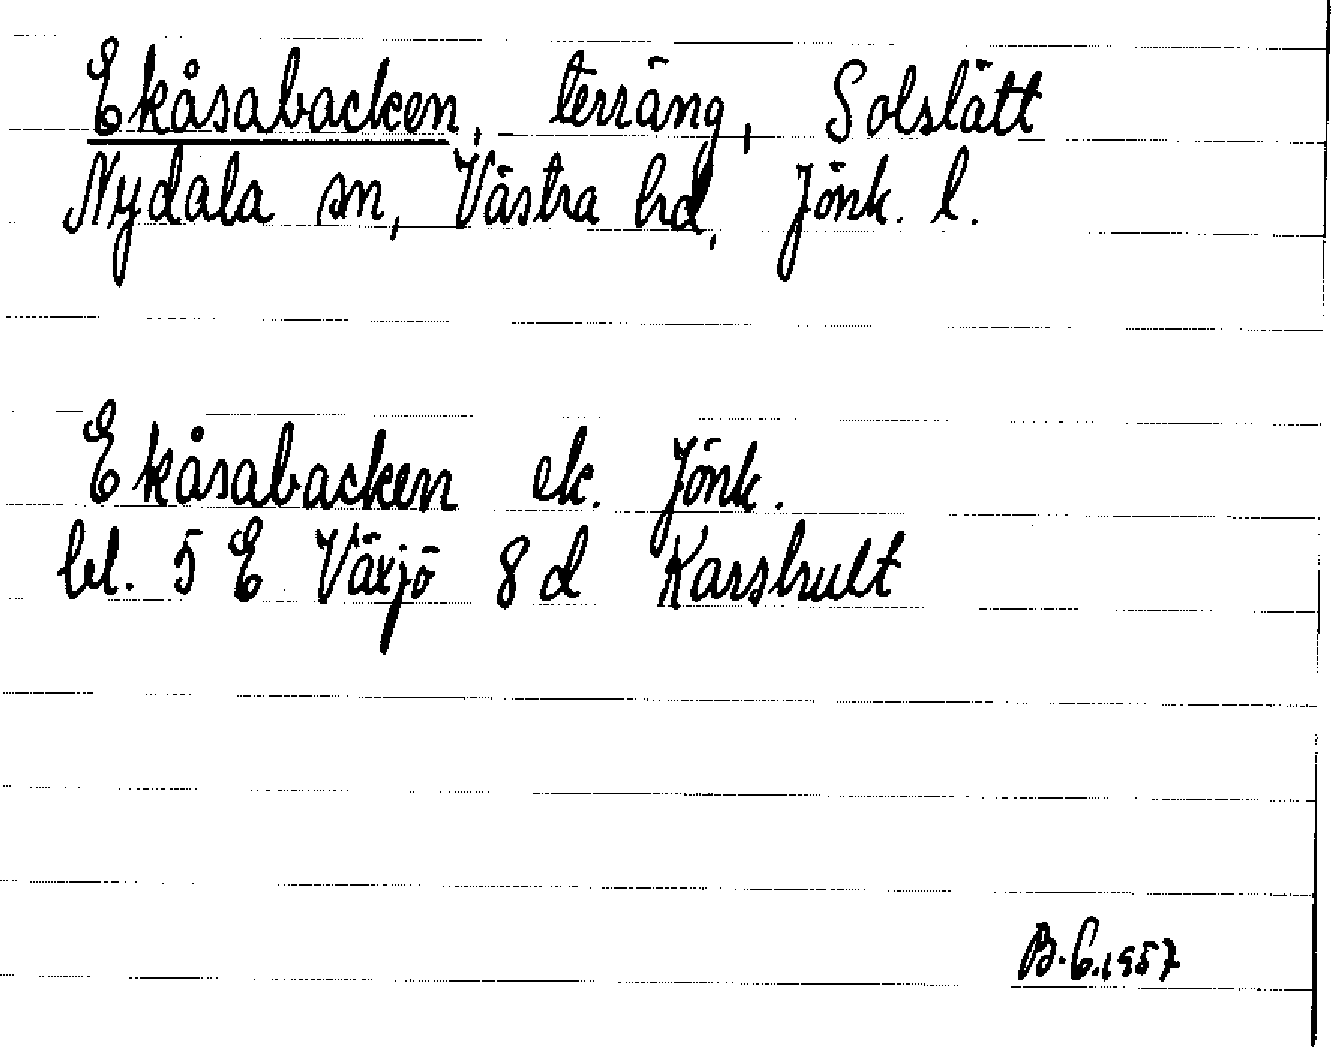 Ekåsabacken, terräng, Solslätt
Nydala sn, Västra hd, Jönk. l.
Ekåsabacken ek. Jönk.
bl. 5 E Växjö 8 d Karshult
B.E.1957